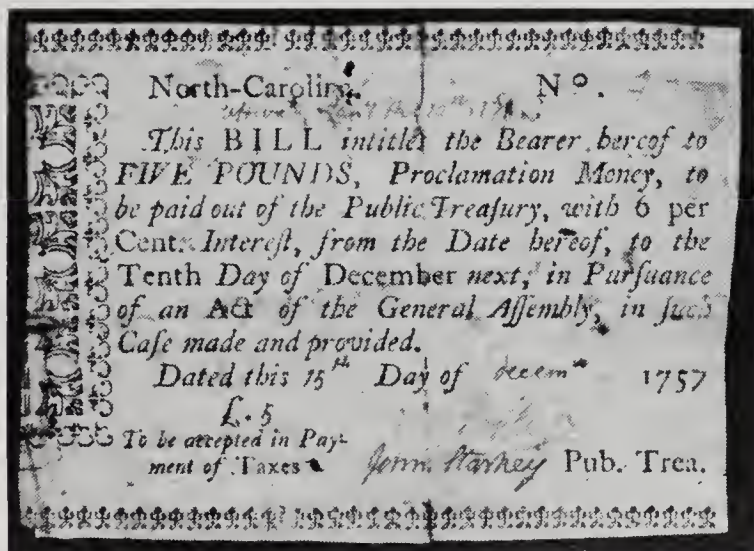 North-Carolina. N°.
This BILL intitles the Bearer hereof to
FIVE POUNDS, Proclamation Money, to
be paid out of the Public Treaſury, with 6 per
Cent. Intereſt, from the Date hereof, to the
Tenth Day of December next, in Purſuance
of an Act of the General Aſſembly, in ſuch
Caſe made and provided.
Dated this 15th Day of Decemr 1757
£. 5
To be accepted in Pay-
ment of Taxes
John Starkey Pub. Trea.